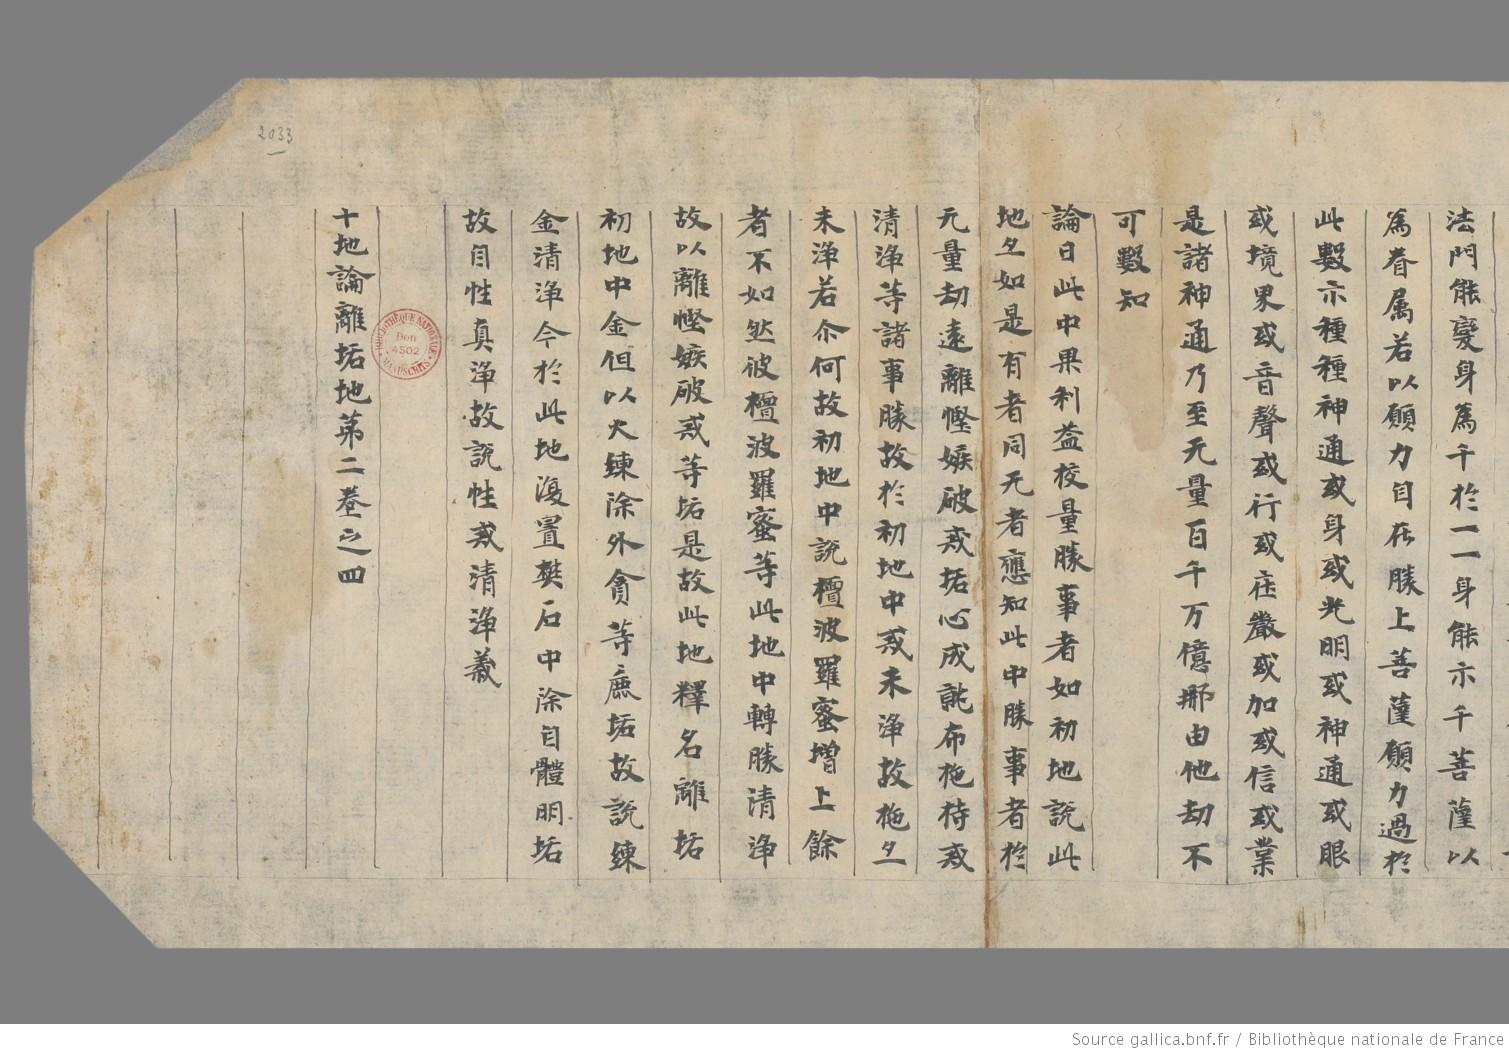 法門能變身為千於一一身能示千菩薩以
為眷属若以願力自在勝上菩薩願力過於
此數示種種神通或身或光明或神通或眼
或境界或音聲或行或庄嚴或加或信或業
是諸神通乃至无量百千万億那由他劫不
可數知
論曰此中果利益校量勝事者如初地説此
地亦如是有者同无者應知此中勝事者於
无量劫遠離慳嫉破戒垢心成就布施持戒
清淨等諸事勝故於初地中戒未淨故施亦
未淨若尒何故初地中説檀波羅蜜增上餘
者不如然彼檀波羅蜜等此地中轉勝清淨
故以離慳嫉破戒等垢是故此地釋名離垢
初地中金但以火練除外貪等麁垢故説練
金清淨今於此地復置礬石中除自體明垢
故自性真淨故説性戒清淨義
十地論離垢地第二卷之四
2033
BIBLIOTHÈQUE NATIONALE
Don
4502
MANUSCRITS
Source gallica.bnf.fr / Bibliothèque nationale de France